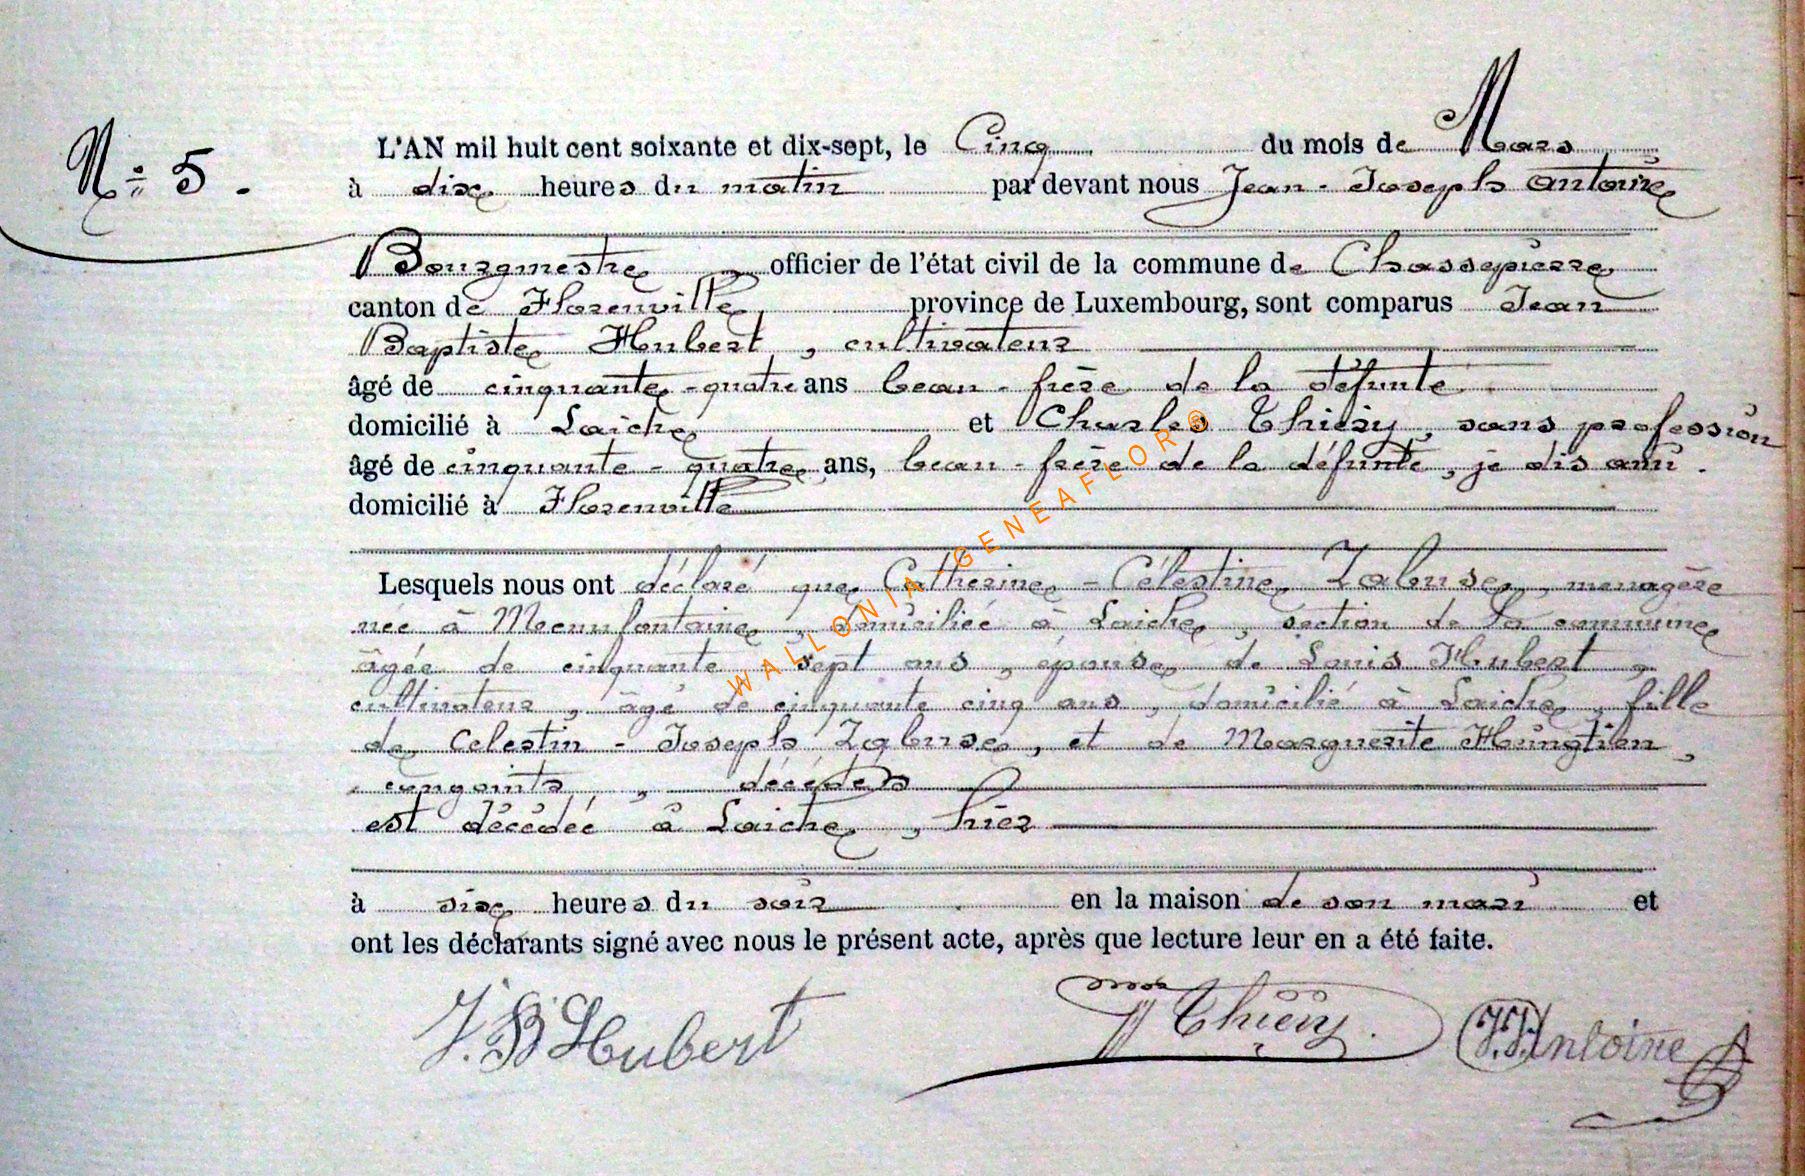 N° 5.
L'AN mil huit cent soixante et dix-sept, le Cinq du mois de Mars
à dix heures du matin par devant nous Jean-Joseph Antoine
Bourgmestre officier de l'état civil de la commune de Chassepierre
canton de Florenville province de Luxembourg, sont comparus Jean
Baptiste Hubert, cultivateur
âgé de cinquante-quatre ans beau-frère de la défunte
domicilié à Laiche et Charles Thiéry, sans profession
âgé de cinquante-quatre ans, beau-frère de la défunte, je dis ami.
domicilié à Florenville
Lesquels nous ont déclaré que Catherine-Célestine Labuse, menagère
née à Menufontaine, domiciliée à Laiche, section de la commune
âgée de cinquante sept ans, épouse de Louis Hubert,
cultivateur, âgé de cinquante cinq ans, domicilié à Laiche, fille
de Celestin-Joseph Labuse, et de Marguerite
conjoints, décédés
est décédée à Laiche, hier
à six heures du soir en la maison de son mari et
ont les déclarants signé avec nous le présent acte, après que lecture leur en a été faite.
J.B Hubert Thiéry. J.J. Antoine
WALLONIA-GENEAFLOR®